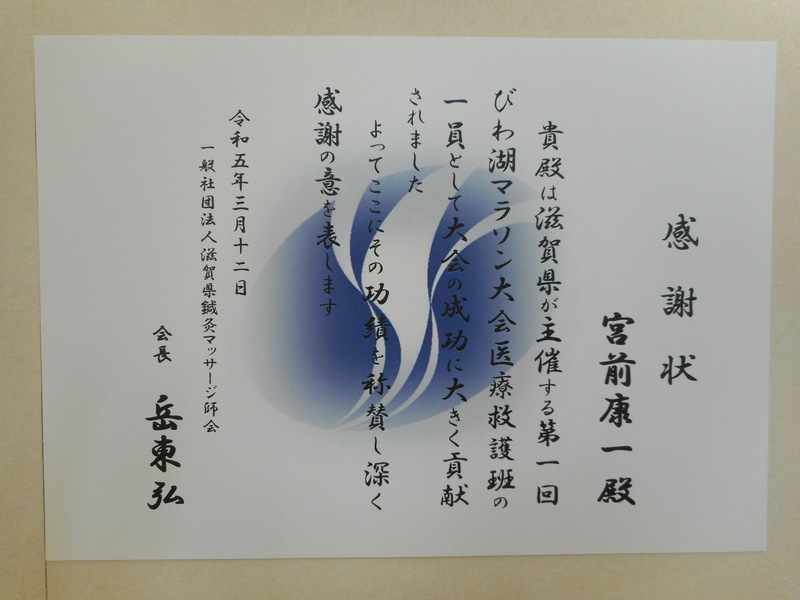 感謝状
宮前康一殿
貴殿は滋賀県が主催する第一回
びわ湖マラソン大会医療救護班の
一員として大会の成功に大きく貢献
されました
よってここにその功績を称賛し深く
感謝の意を表します
令和五年三月十二日
一般社団法人滋賀県鍼灸マッサージ師会
会長 岳東弘